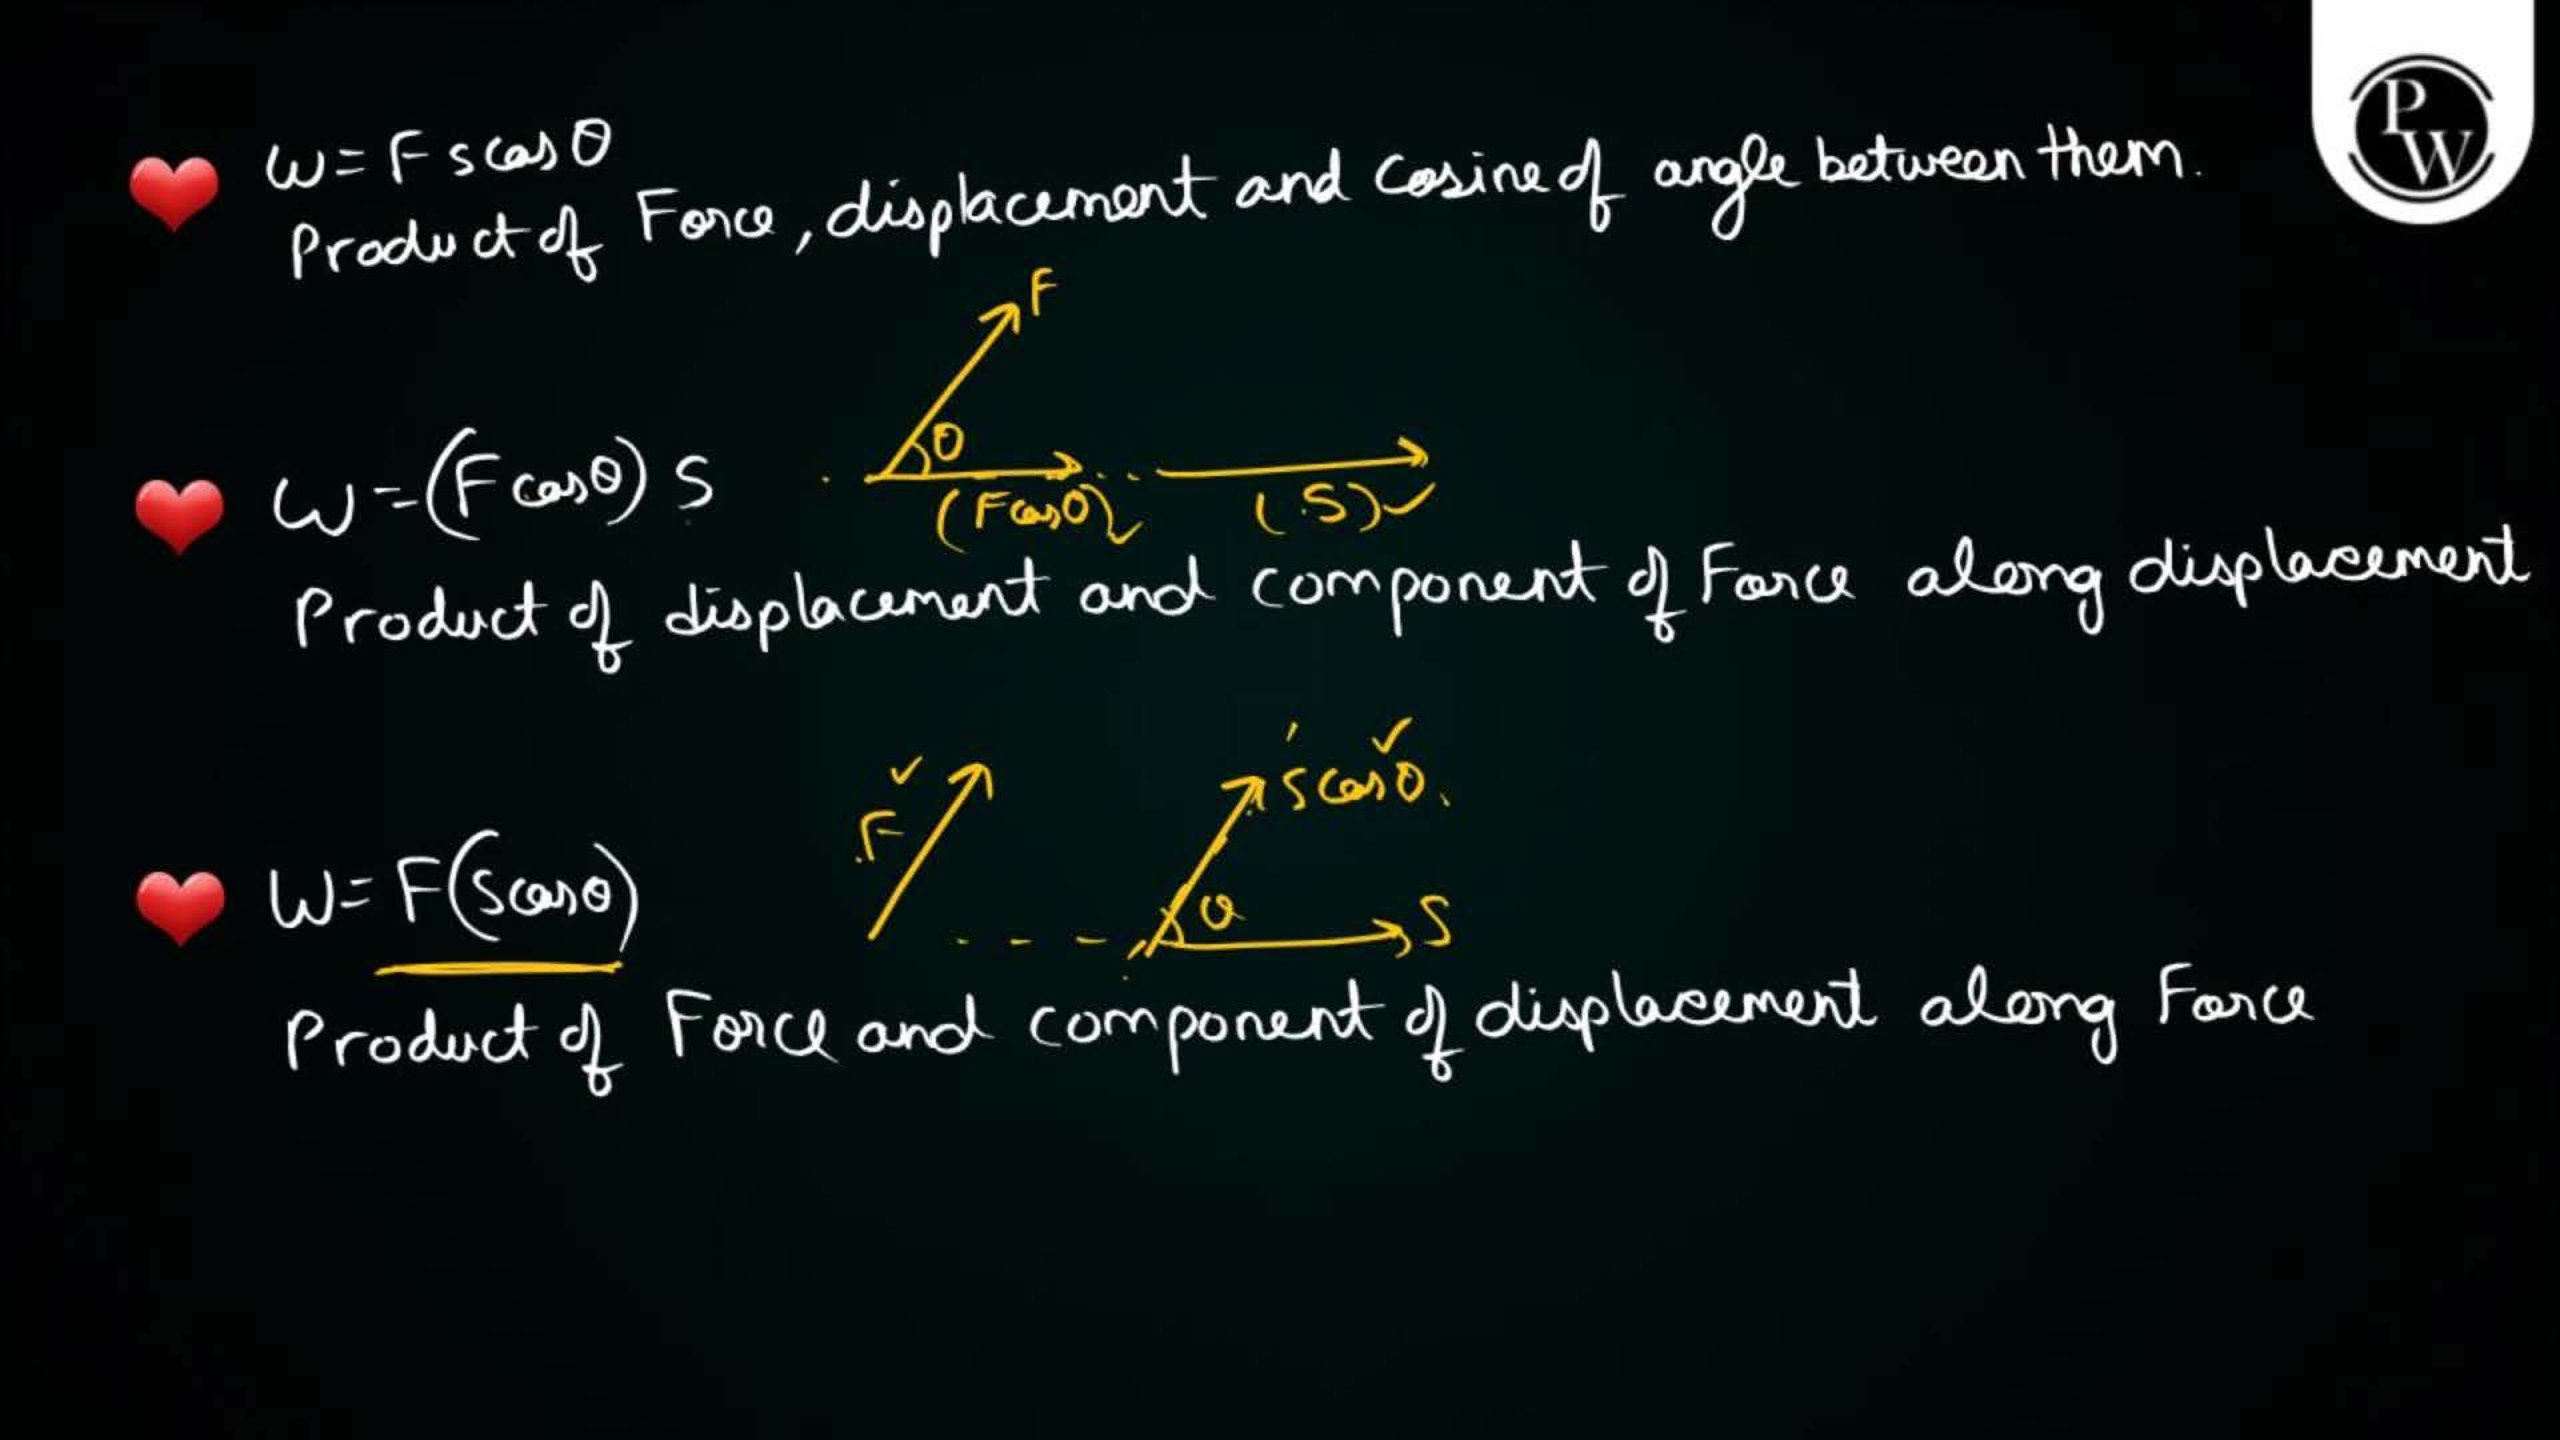 W = F s cos θ
Product of Force, displacement and cosine of angle between them.
F
θ
(F cos θ)
(S)
W = (F cos θ) S
Product of displacement and component of Force along displacement
F
s cos θ
θ
S
W = F(s cos θ)
Product of Force and component of displacement along Force
P
W